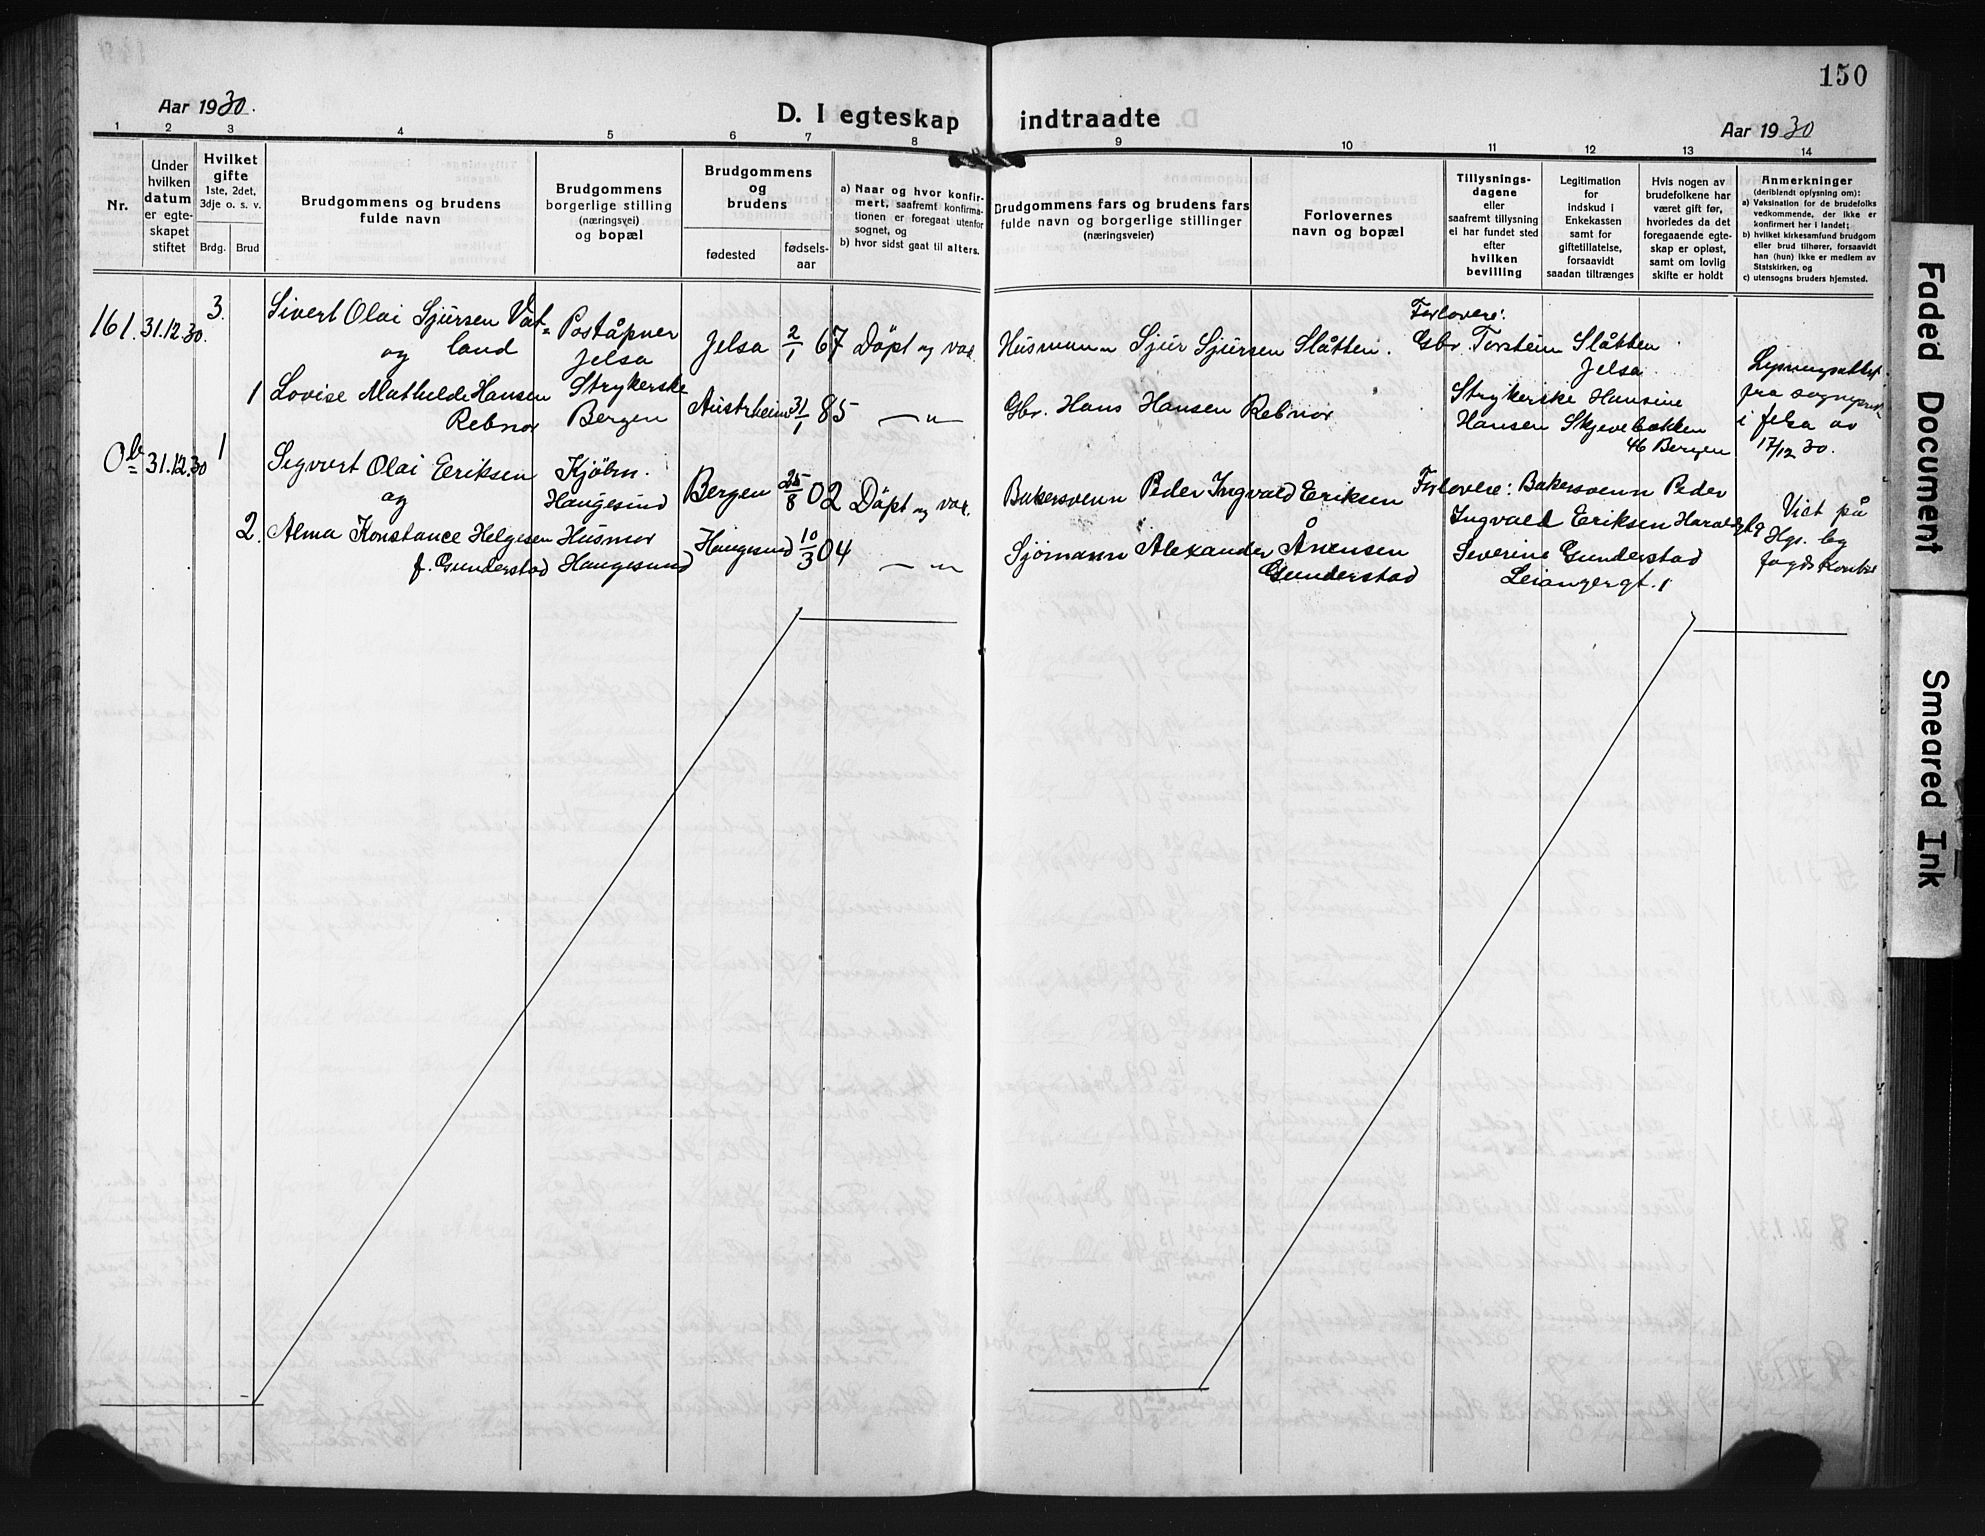 150
Aar 1930.
D. I egteskap indtraadte
Aar 1930
1 2 3 4 5 6 7 8 9 10 11 12 13 14
Nr.
Under
hvilken
datum
er egte-
skapet
stiftet
Hvilket
gifte
1ste, 2det,
3dje o. s. v.
Brdg. Brud
Brudgommens og brudens
fulde navn
Brudgommens
borgerlige stilling
(næringsvei)
og bopæl
Brudgommens
og
brudens
fødested
fødsels-
aar
a) Naar og hvor konfir-
mert, saafremt konfirma-
tionen er foregaat utenfor
sognet, og
b) hvor sidst gaat til alters.
Brudgommens fars og brudens fars
fulde navn og borgerlige stillinger
(næringsveier)
Forlovernes
navn og bopæl
Tillysnings-
dagene
eller
saafremt tillysning
ei har fundet sted
efter
hvilken
bevilling
Legitimation
for
indskud i
Enkekassen
samt for
giftetillatelse,
forsaavidt
saadan tiltrænges
Hvis nogen av
brudefolkene har
været gift før,
hvorledes da det
foregaaende egte-
skap er opløst,
samt om lovlig
skifte er holdt
Anmerkninger
(deriblandt oplysning om):
a) Vaksination for de brudefolks
vedkommende, der ikke er
konfirmert her i landet;
b) hvilket kirkesamfund brudgom
eller brud tilhører, forsaavidt
han (hun) ikke er medlem av
Statskirken, og
c) utensogns bruders hjemsted.
161. 31.12.30. 3.
Sivert Olai Sjursen Vat-
land
og
Poståpner
Jelsa
Jelsa 2/1 67 Döpt og vac.
Husmann Sjur Sjursen Slåtten.
Forlovere:
Gbr. Torstein Slåtten
Jelsa
1 Lovise Mathilde Hansen
Rebnor
Strykerske
Bergen
Austrheim 31/1 85 — " —
Gbr. Hans Hansen Rebnor
Strykerske Hansine
Hansen Skjevebakken
46 Bergen
Lysningsattest
fra sogneprest
i Jelsa av
17/12 30.
0b 31.12.30 1
Sigvert Olai Eeriksen
og
Kjöbm.
Haugesund
Bergen 25/8 02 Döpt og vac.
Bakersvenn Peder Ingvald Eriksen
Forlovere: Bakersvenn Peder
Ingvald Eriksen Haraldsg
2. Alma Konstance Helgesen
f. Gunderstad
Husmor
Haugesund
Haugesund 10/3 04 — " —
Sjömann Alexander Ånensen
Gunderstad
Severine Gunderstad
Leiangergt. 1
Viet på
Hgs. by
fogds kontor
Faded Document
Smeared Ink